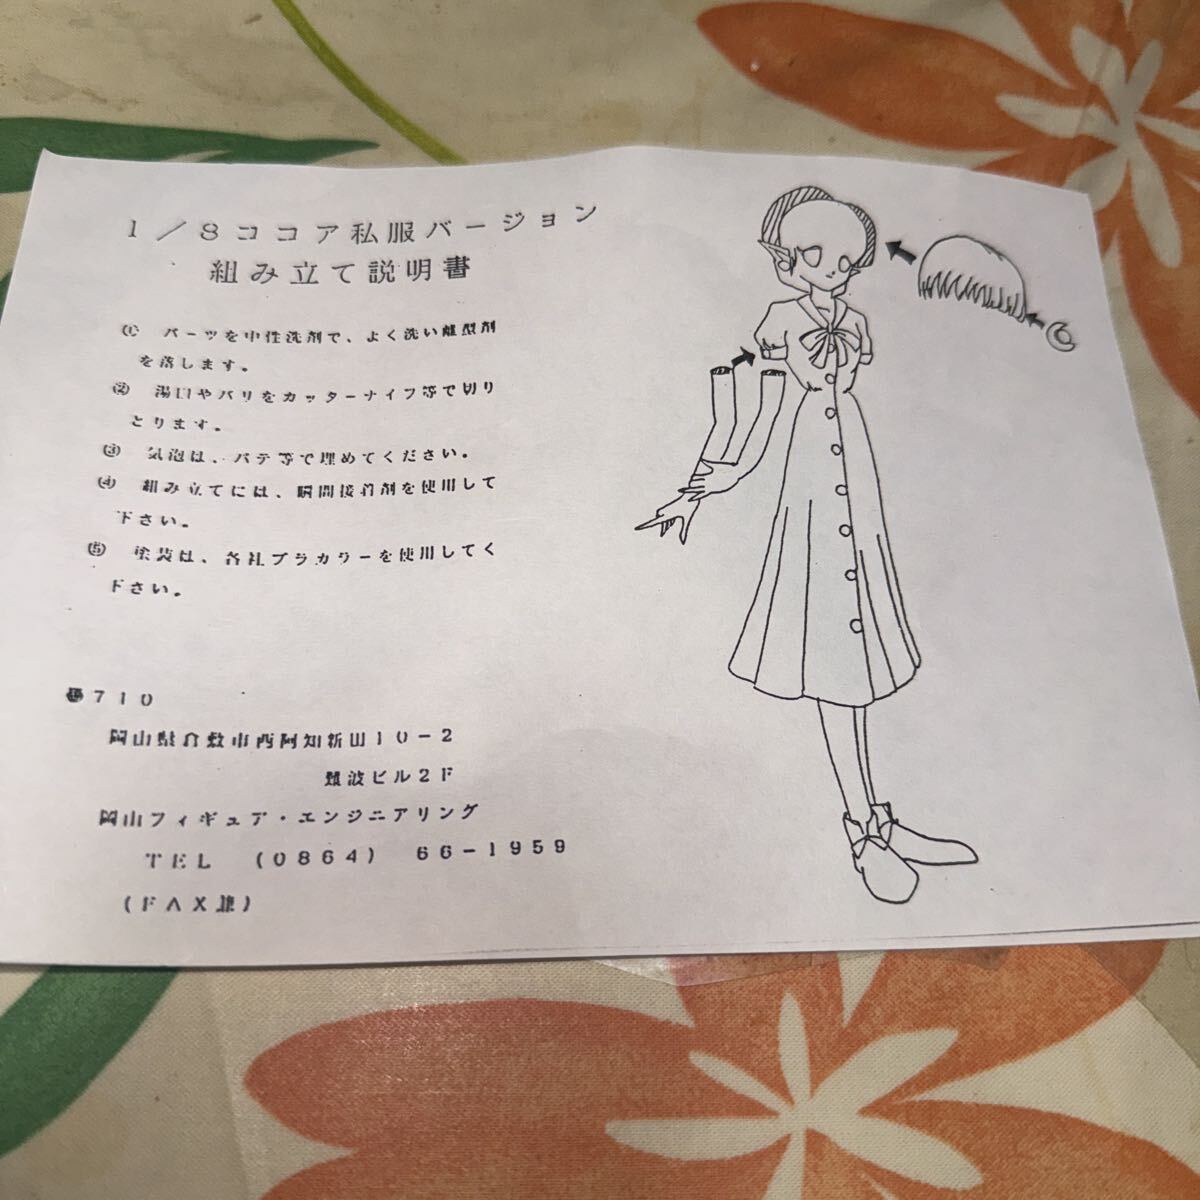 1／8ココア私服バージョン
組み立て説明書
① パーツを中性洗剤で、よく洗い離型剤
を落します。
② 湯口やバリをカッターナイフ等で切り
とります。
③ 気泡は、パテ等で埋めてください。
④ 組み立てには、瞬間接着剤を使用して
下さい。
⑤ 塗装は、各社プラカラーを使用してく
ださい。
710
岡山県倉敷市西阿知新田10－2
難波ビル2F
岡山フィギュア・エンジニアリング
TEL （0864） 66－1959
（FAX兼）